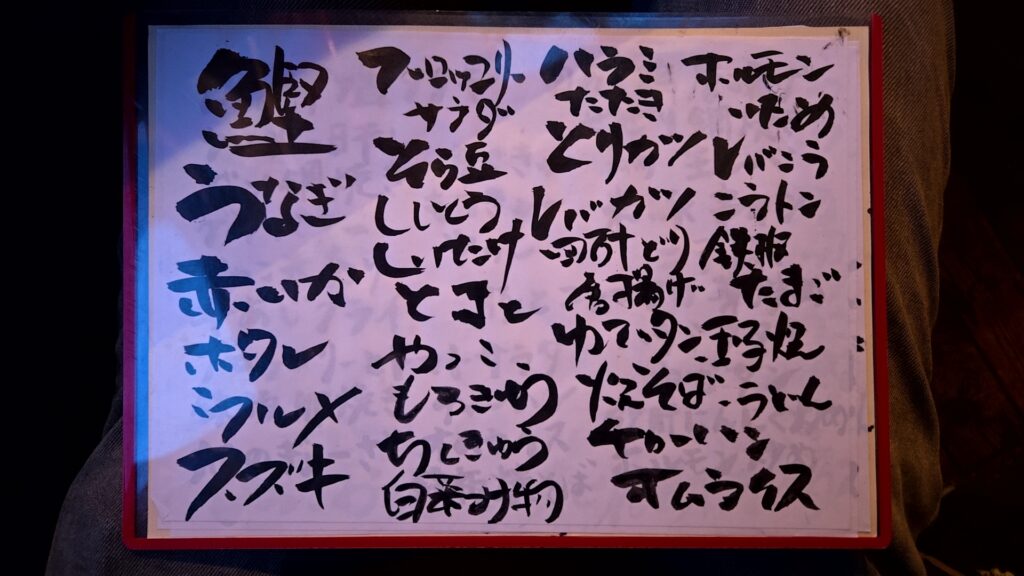 鰹
うなぎ
赤いか
スズキ
ブロッコリー
サラダ
そら豆
ししとう
しいたけ
とまと
やっこ
もろきゅう
ちくきゅう
ハラミ
たたき
とりカツ
レバカツ
四万十どり
唐揚げ
ゆでタン
玉子焼
やきそば・うどん
チャーハン
オムライス
ホルモン
いため
レバニラ
ニラトン
鉄板
たまご